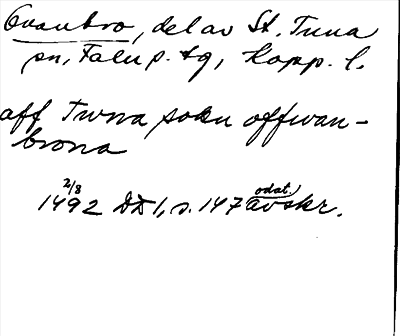 Ovanbro, del av St. Tuna
sn, Falu s. tg, Kopp. l.
aff Twna sokn offwan-
brona
2/8 odat.
1492 DD 1, s. 147 avskr.